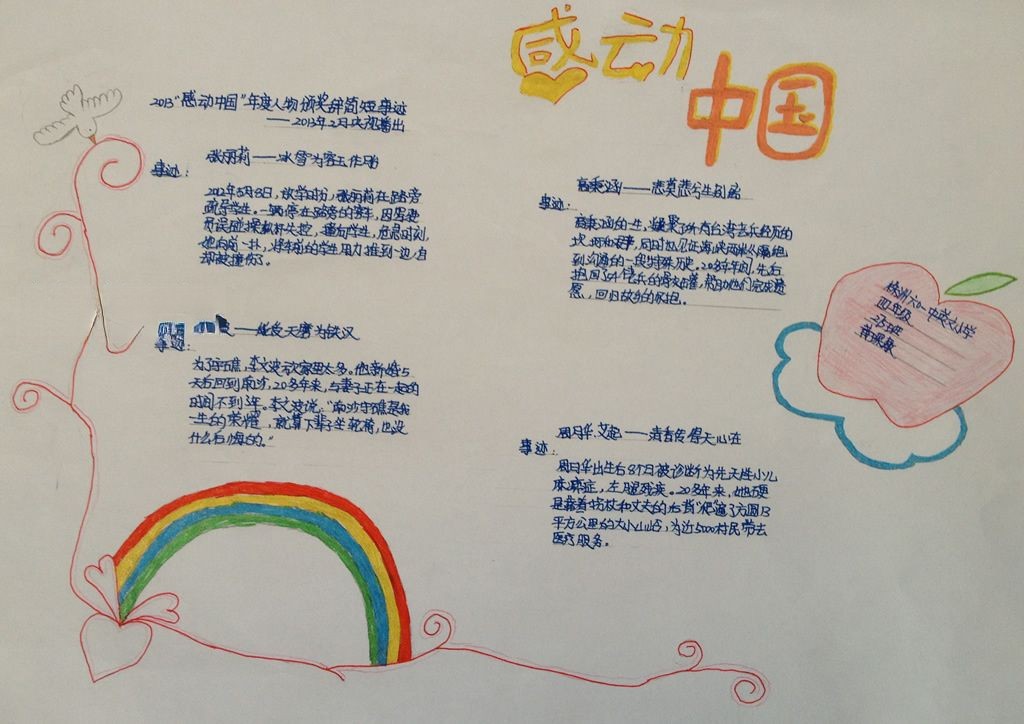 感动
中国
2013“感动中国”年度人物颁奖辞简短事迹
——2013年2月央视播出
张丽莉——冰雪为容玉作胎
事迹：
2012年5月8日，放学时分，张丽莉在路旁
疏导学生。一辆停在路旁的客车，因驾驶
员误碰操纵杆失控，撞向学生，危急时刻，
她向前一扑，将车前的学生用力推到一边，自
却被撞伤了。
——炼成天磨为铁汉
事迹：
为了守礁，李文波欠家里太多。他新婚5
天后回到南沙，20多年来，与妻子正在一起的
时间不到3年。李文波说，“南沙守礁是我
一生的荣耀，就算下辈子坐轮椅，也没
什么后悔的。”
高秉涵——悲莫悲兮生别离
事迹：
高秉涵的一生，凝聚了所有台湾老兵经历的
坎坷和故事，同时也见证海峡两岸从隔绝
到沟通的一段特殊历史。20多年间，先后
抱回了54个老兵的骨灰罐，帮助他们完成遗
愿，回归故乡的怀抱。
周月华、艾起——清香传得天心在
事迹：
周月华出生后8个月被诊断为先天性小儿
麻痹症，左腿残疾。20多年来，她硬
是靠着拐杖和丈夫的后背“爬”遍了方圆13
平方公里的大小山岭，为近5000村民带去
医疗服务。
株洲六〇一中英文小学
四年级
班